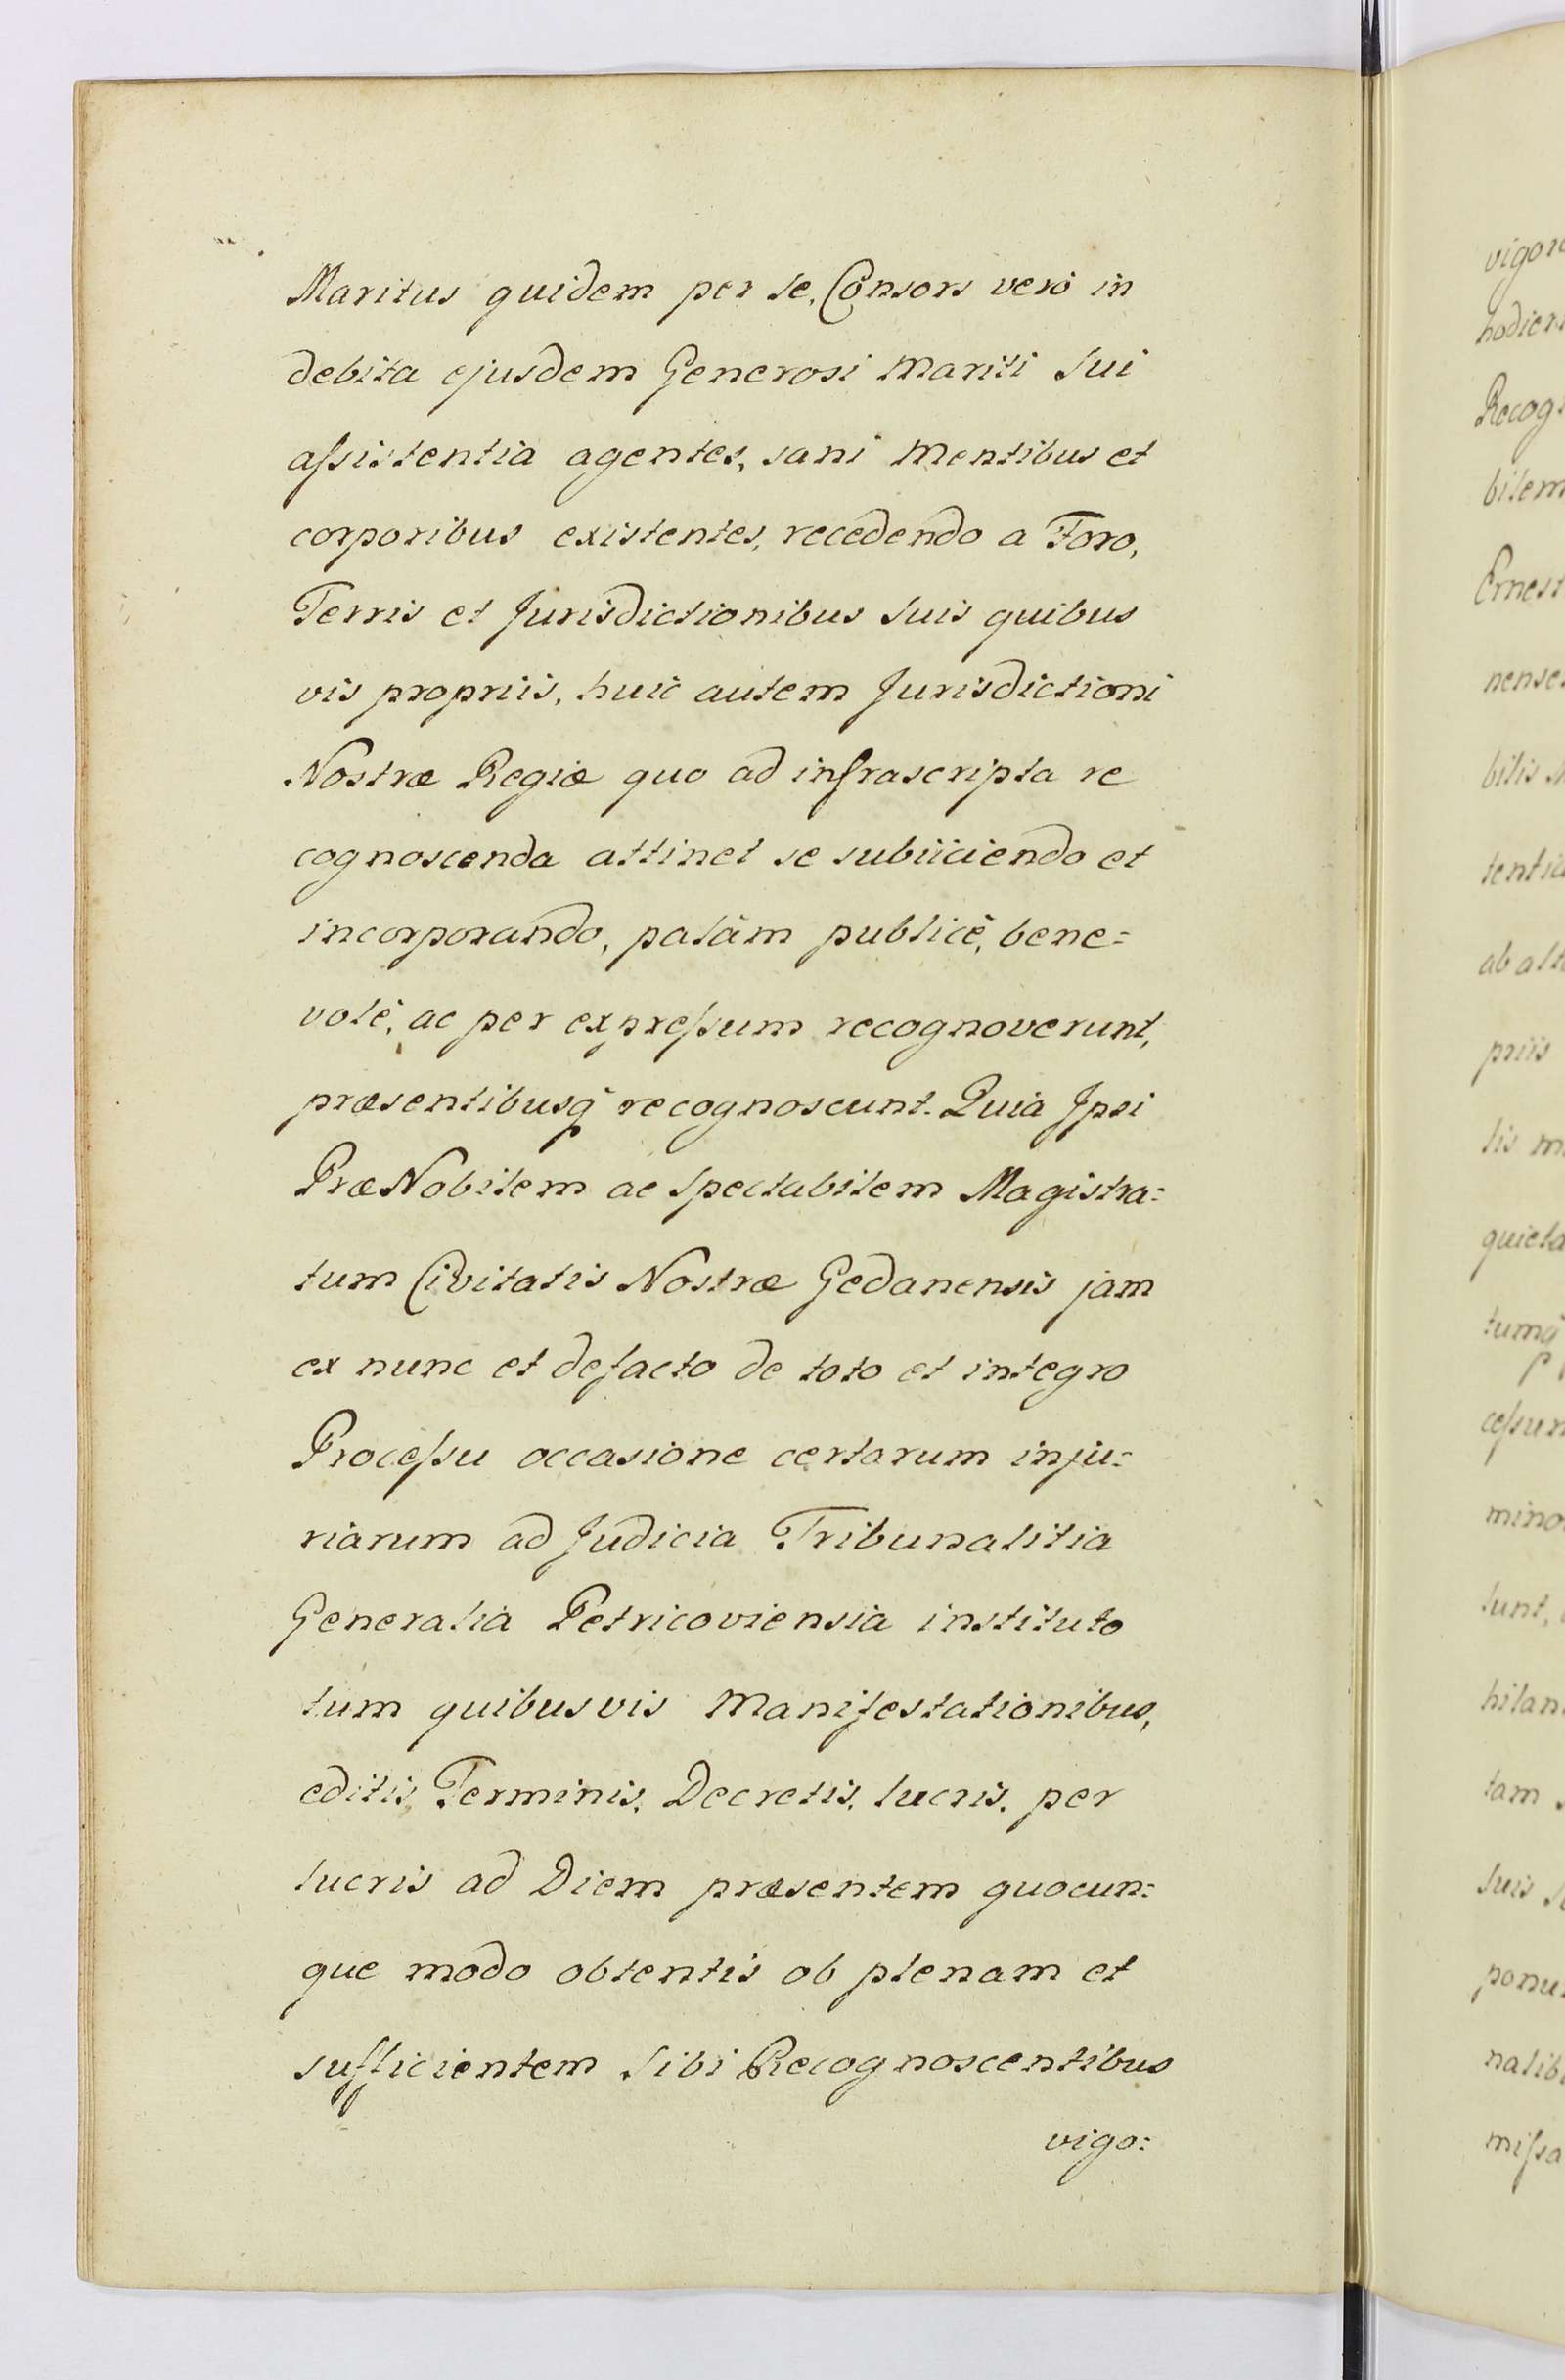 Maritus quidem per se, Consors verò in
debita ejusdem Generosi Mariti Sui
aſsistentia agentes, sani Mentibus et
corporibus existentes, recedendo a Foro,
Terris et Jurisdictionibus Suis quibus
vis propriis, huic autem Jurisdictioni
Nostræ Regiæ quo ad infrascripta re
cognoscenda attinet se subiiciendo et
incorporando, palàm publicè, bene=
volè, ac per expreſsum recognoverunt,
præsentibusq́ recognoscunt. Quia Ipsi
PræNobilem ac Spectabilem Magistra=
tum Civitatis Nostræ Gedanensis jam
ex nunc et defacto de toto et integro
Proceſsu occasione certarum inju=
riarum ad Judicia Tribunalitia
Generalia Petricoviensia instituto
tum quibusvis Manifestationibus,
editis, Terminis, Decretis, lucris, per
lucris ad Diem præsentem quocun=
que modo obtentis ob plenam et
sufficientem Sibi Recognoscentibus
vigo=
vigor
hodier
Recog
bilem
Ernest
nense
bilis
tentia
ab alt
priis
lis m
quieta
tumq́
ceſsum
mino
sunt,
hilan
tam
Suis
ponu
nalib
miſsa